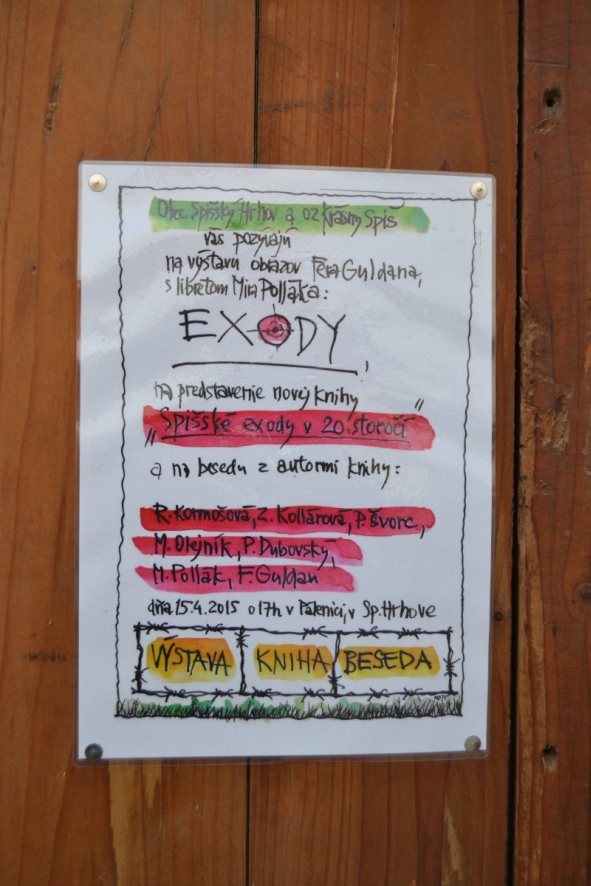 Obec Spišský Hrhov a OZ Krásny Spiš
vás pozývajú
na výstavu obrazov Fera Guldana,
s libretom Mira Pollaka:
EXODY,
na predstavenie novej knihy
„Spišské exody v 20. storočí"
a na besedu z autormi knihy:
R. Kormošová, Z. Kollárová, P. Švorc,
M. Olejník, P. Dubovský,
M. Pollák, F. Guldan
dňa 15.4.2015 o 17h v Pálenici, v Sp. Hrhove
VÝSTAVA KNIHA BESEDA